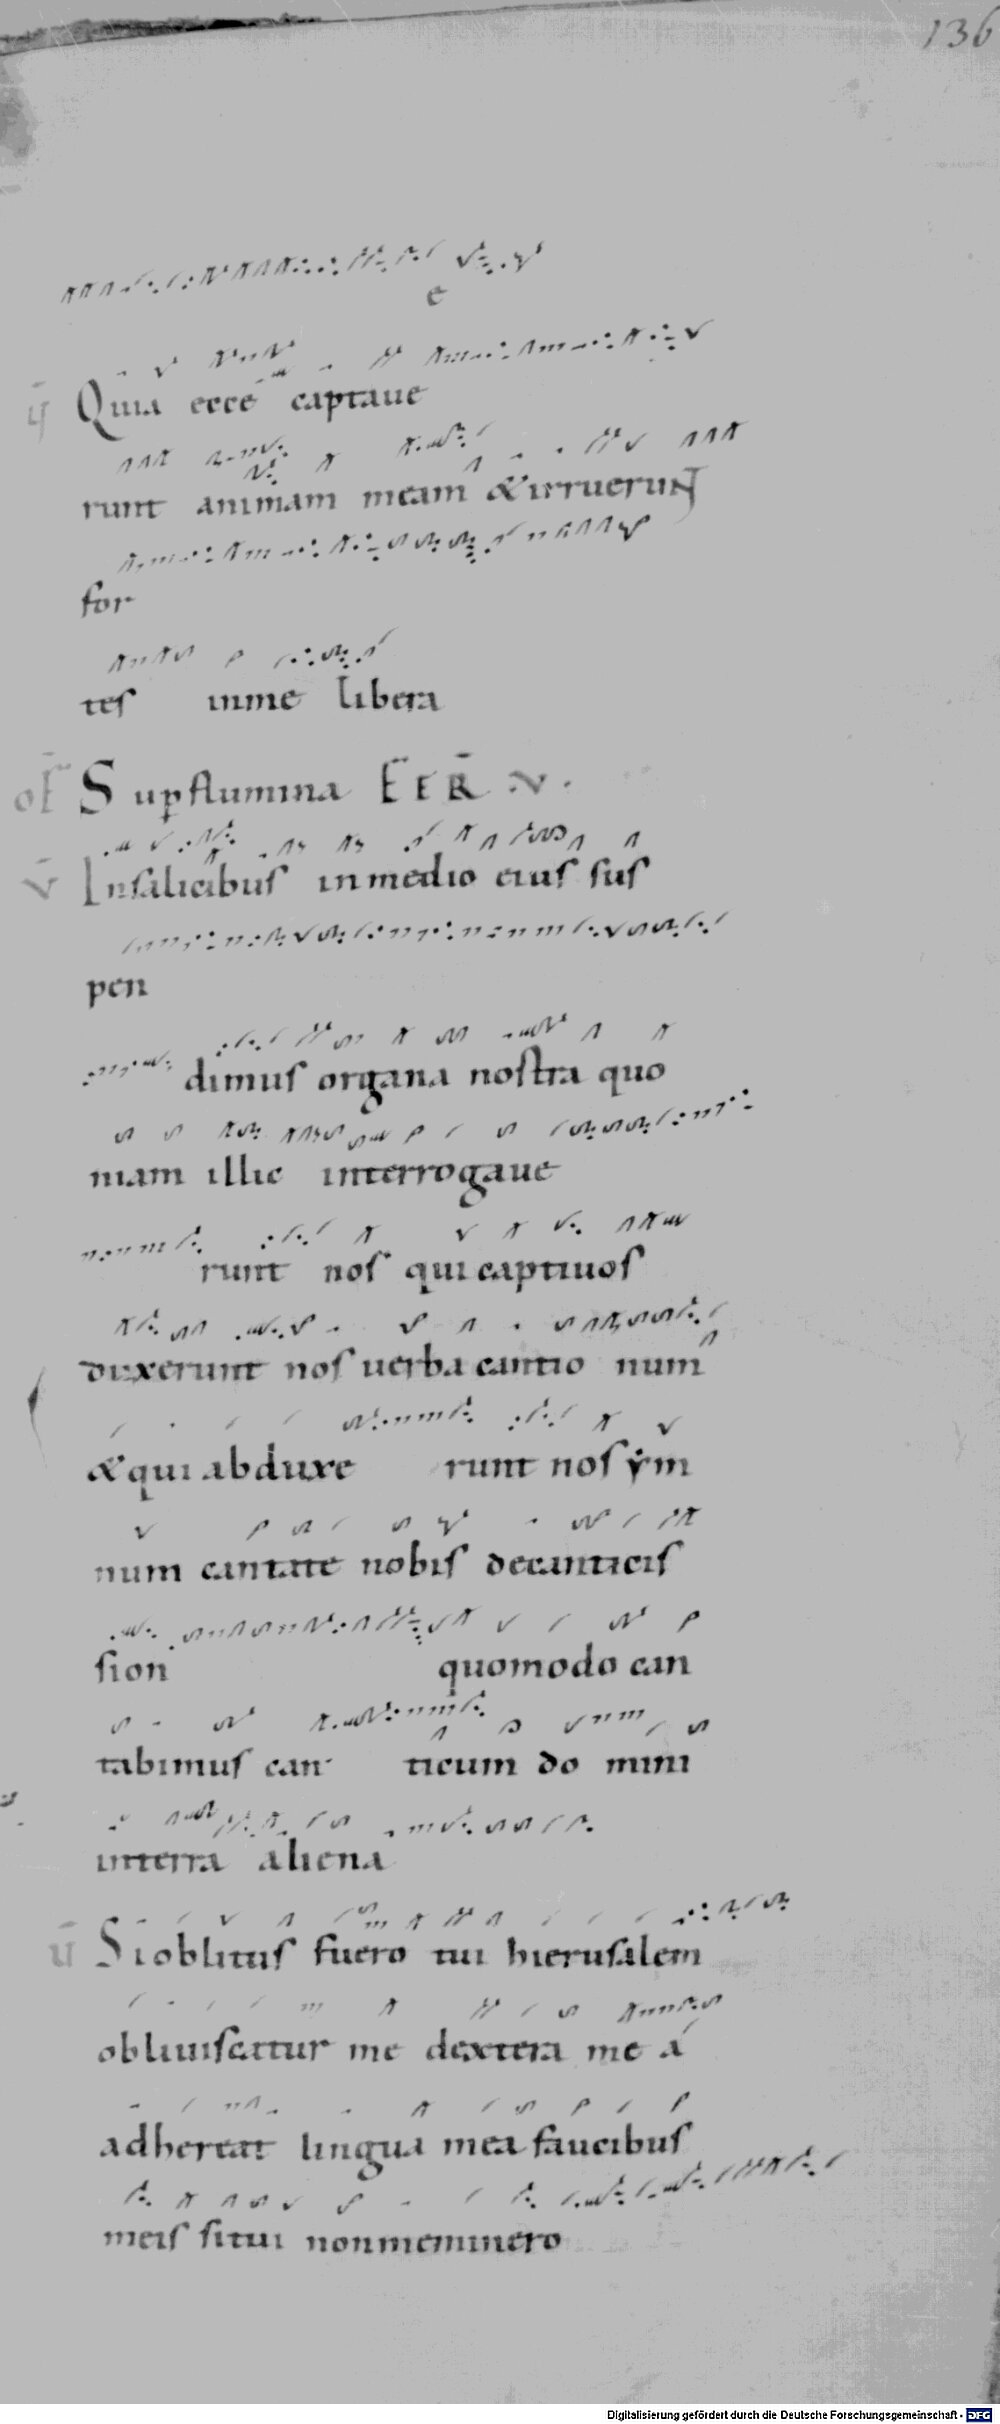 136
e
Quia ecce captaue
runt animam meam & irruerunt
for
tes in me libera
of Sup flumina FERIA V.
v̄ In salicibus in medio eius sus
pen
dimus organa nostra quo
niam illic interrogaue
runt nos qui captiuos
duxerunt nos uerba cantio num
& qui abduxe runt nos ẏm
num cantate nobis decanticis
sion quomodo can
tabimus can ticum do mini
interra aliena
ū Si oblitus fuero tui hierusalem
obliuiscatur me dextera me a
adhereat lingua mea faucibus
meis si tui non meminero
Digitalisierung gefördert durch die Deutsche Forschungsgemeinschaft - DFG